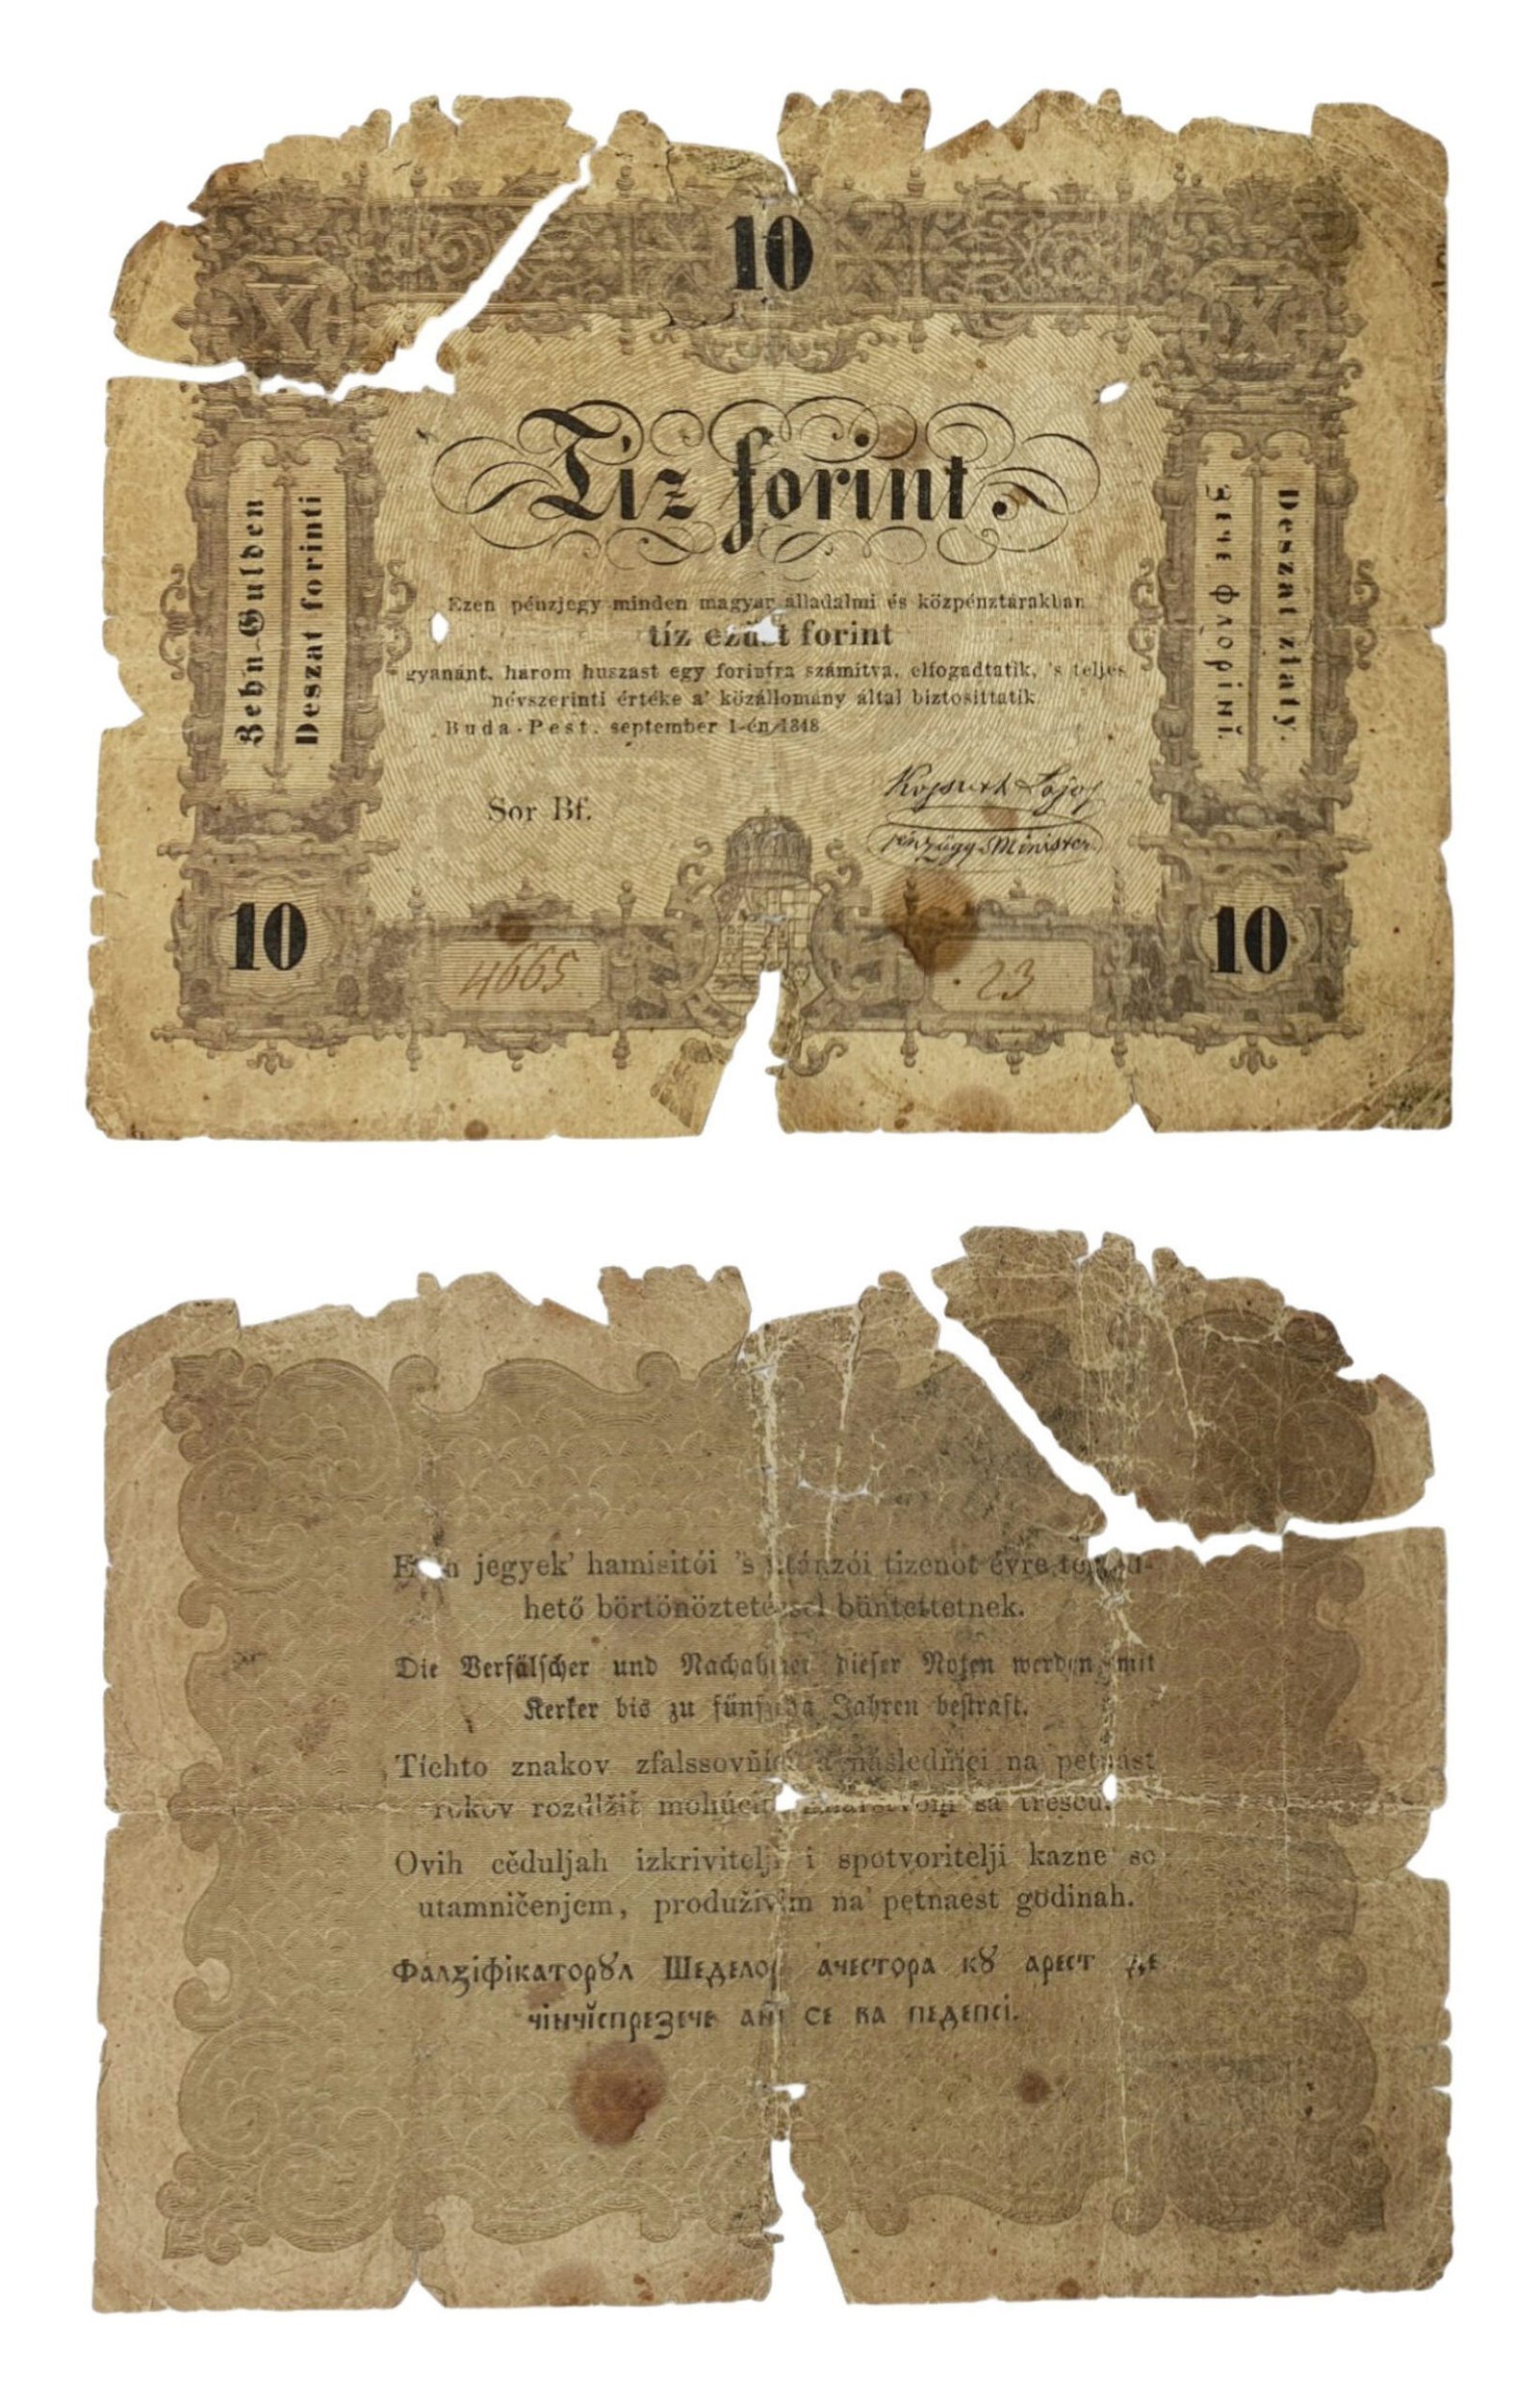 10
X
X
Tíz forint.
Zehn Gulden
Deszat forinti
Зече флорінĭ.
Deszat zlaty.
Ezen pénzjegy minden magyar álladalmi és középpénztárakban
tíz ezüst forint
gyanánt, három huszast egy forintra számítva, elfogadtatik, 's teljes
névszerinti értéke a' közállomány által biztosittatik
Buda-Pest. september 1-én 1848
Sor Bf.
Kossuth Lajos
pénzügyi Minister
10
4665
23
10
jegyek' hamisitói 's utánzói tizenöt évre
hető börtönöztetéssel büntettetnek.
Die Verfälscher und Nachahmer dieser Noten werden mit
Kerker bis zu fünfzehn Jahren bestraft.
Tíchto znakov zfalssovňíci a následňíci na petnast
rokov rozdlžiť mohúcim sa trescú.
Ovih cěduljah izkrivitelji i spotvoritelji kazne se
utamničenjem, produživim na petnaest godinah.
Фалзіфікаторȣл Шеделор ачестора кȣ арест де
чінчĭспрезече анĭ се ва педепсі.